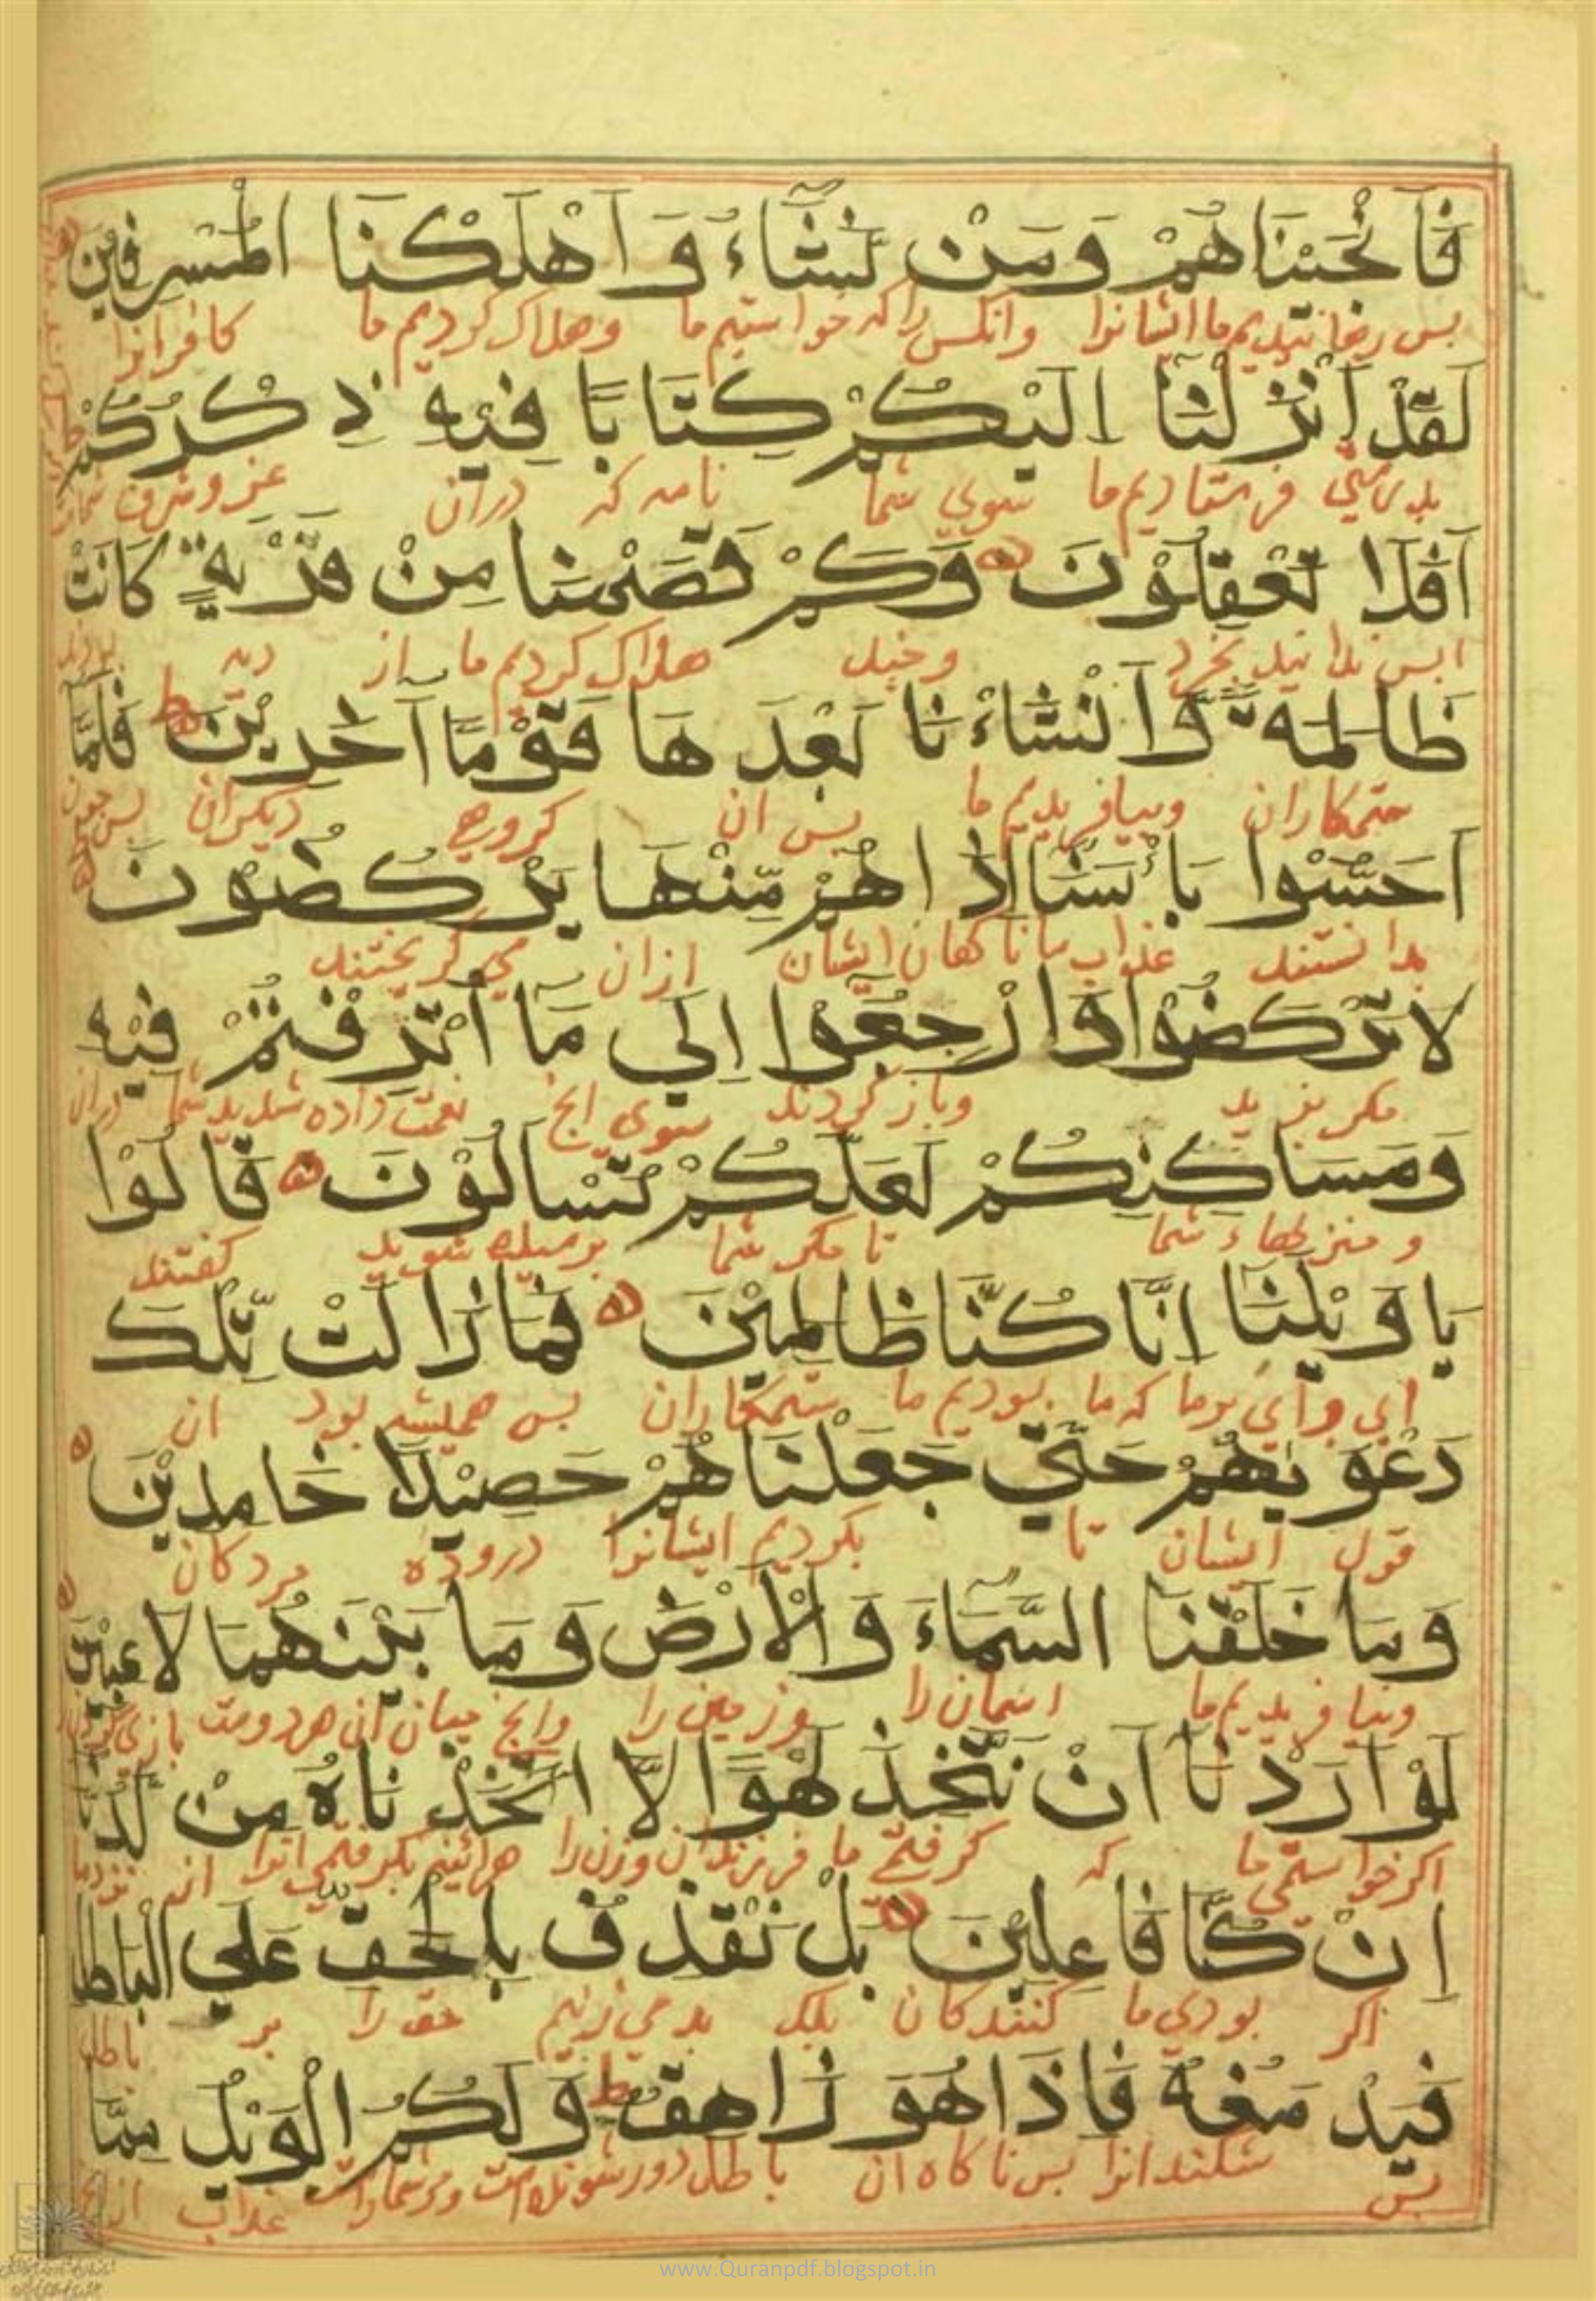 فَاَنْجَيْنَاهُمْ وَمَنْ نَشَّاءُ وَاَهْلَكْنَا الْمُسْرِفِيْنَ
بس رهانیدیم ما ایشانرا وانکس را که خواستیم ما وهلاک کردیم ما کافرانرا
لَقَدْ اَنْزَلْنَا اِلَيْكُمْ كِتَابًا فِيْهِ ذِكْرُكُمْ
بدرستی فرستادیم ما سوی شما نامه که دران عز وشرف شماست
اَفَلَا تَعْقِلُوْنَ وَكَمْ قَصَمْنَا مِنْ قَرْيَةٍ كَانَتْ
ایس ندانید بخرد وخیل هلاک کردیم ما از دیه بودند
ظَالِمَةً وَّاَنْشَاْءنَا بَعْدَهَا قَوْمًا آخَرِيْنَ فَلَمَّا
ستمکاران وبیافریدیم ما بس ان کروهی دیکران بس جون
اَحَسُّوْا بَاْسَنَا اِذَا هُمْ مِّنْهَا يَرْكُضُوْنَ
بدانستند عذاب ما ناکهان ایشان ازان می کریختند
لَا تَرْكُضُوْا وَارْجِعُوْا اِلَي مَا اُتْرِفْتُمْ فِيْهِ
مکریزید وباز کردند سوی انچ نعمت داده شدید شما دران
وَمَسَاكِنِكُمْ لَعَلَّكُمْ تُسْاَلُوْنَ قَالُوْا
و منزلهاء شما تا مکر شما برسیده شوید کفتند
يَا وَيْلَنَا اِنَّا كُنَّا ظَالِمِيْنَ فَمَا زَالَتْ تِّلْكَ
ای وای برما که ما بودیم ما ستمکاران بس همیشه بود ان
دَعْوَيهُمْ حَتَّي جَعَلْنَاهُمْ حَصِيْدًا خَامِدِيْنَ
قول ایشان تا بکردیم ایشانرا دروده مردکان
وَمَا خَلَقْنَا السَّمَاءَ وَالْاَرْضَ وَمَا بَيْنَهُمَا لَاعِبِيْنَ
ونیافریدیم ما اسمان را وزمین را وانچ میان ان هر دوست بازی
لَوْ اَرَدْنَا اَنْ نَتَّخِذَ لَهْوًا لَّا اتَّخَذْنَاهُ مِنْ لَّدُنَّا
اکر خواستمی ما که کرفتمی ما فرزندان وزن را هرائینه بکرفتمی انرا از نزد ما
اِنْ كُنَّا فَاعِلِيْنَ بَلْ نَقْذِفُ بِالْحَقِّ عَلَي الْبَاطِلِ
اکر بودی ما کنندکان بلک بدمی زنیم حق را بر باطل
فَيَدْمَغُهُ فَاِذَا هُوَ زَاهِقٌ وَلَكُمُ الْوَيْلُ مِمَّا
بس شکند انرا بس ناکاه ان باطل دور شونده است ومر شماراست عذاب از انچ
www.Quranpdf.blogspot.in